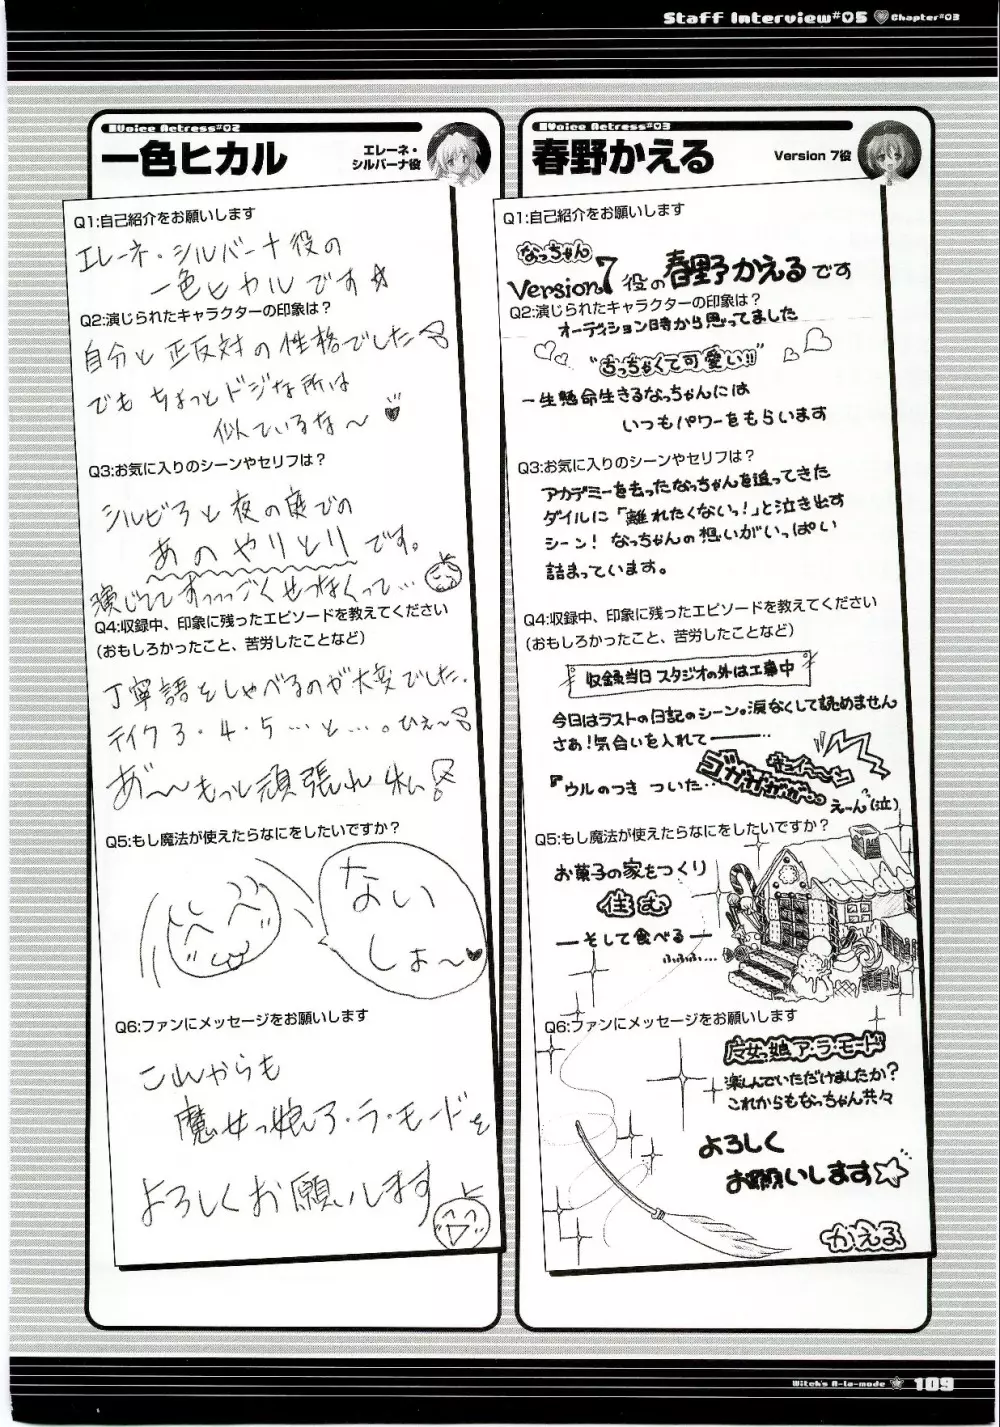 Staff Interview#05 Chapter#03
Voice Actress#02
一色ヒカル
エレーネ・
シルバーナ役
Q1:自己紹介をお願いします
エレーネ・シルバーナ役の
一色ヒカルです☆
Q2:演じられたキャラクターの印象は?
自分と正反対の性格でした
でもちょっとドジな所は
似ているな〜♥
Q3:お気に入りのシーンやセリフは?
シルビアと夜の庭での
あのやりとりです。
演じててすっっっごくせつなくって…
Q4:収録中、印象に残ったエピソードを教えてください
(おもしろかったこと、苦労したことなど)
丁寧語をしゃべるのが大変でした.
テイク3・4・5…と…。ひぇ〜
あ゛〜もっと頑張れ私
Q5:もし魔法が使えたらなにをしたいですか?
ない
しょ〜♥
Q6:ファンにメッセージをお願いします
これからも
魔女っ娘ア・ラ・モードを
よろしくお願いします
Voice Actress#03
春野かえる
Version 7役
Q1:自己紹介をお願いします
なっちゃん
Version7役の春野かえるです
Q2:演じられたキャラクターの印象は?
オーディション時から思ってました
"ちっちゃくて可愛い!!"
一生懸命生きるなっちゃんには
いつもパワーをもらいます
Q3:お気に入りのシーンやセリフは?
アカデミーを去ったなっちゃんを追ってきた
ダイルに「離れたくないっ!」と泣き出す
シーン! なっちゃんの想いがいっぱい
詰まっています。
Q4:収録中、印象に残ったエピソードを教えてください
(おもしろかったこと、苦労したことなど)
収録当日 スタジオの外は工事中
今日はラストの日記のシーン。涙なくして読めません
さぁ!気合いを入れて―――…
『ウルのつき ついた…
ゴガガガガガ…
えーん(泣)
Q5:もし魔法が使えたらなにをしたいですか?
お菓子の家をつくり
住む
―そして食べる―
ふふふ…
Q6:ファンにメッセージをお願いします
魔女っ娘ア・ラ・モード
楽しんでいただけましたか?
これからもなっちゃん共々
よろしく
お願いします☆
かえる
Witch's A-la-mode 109